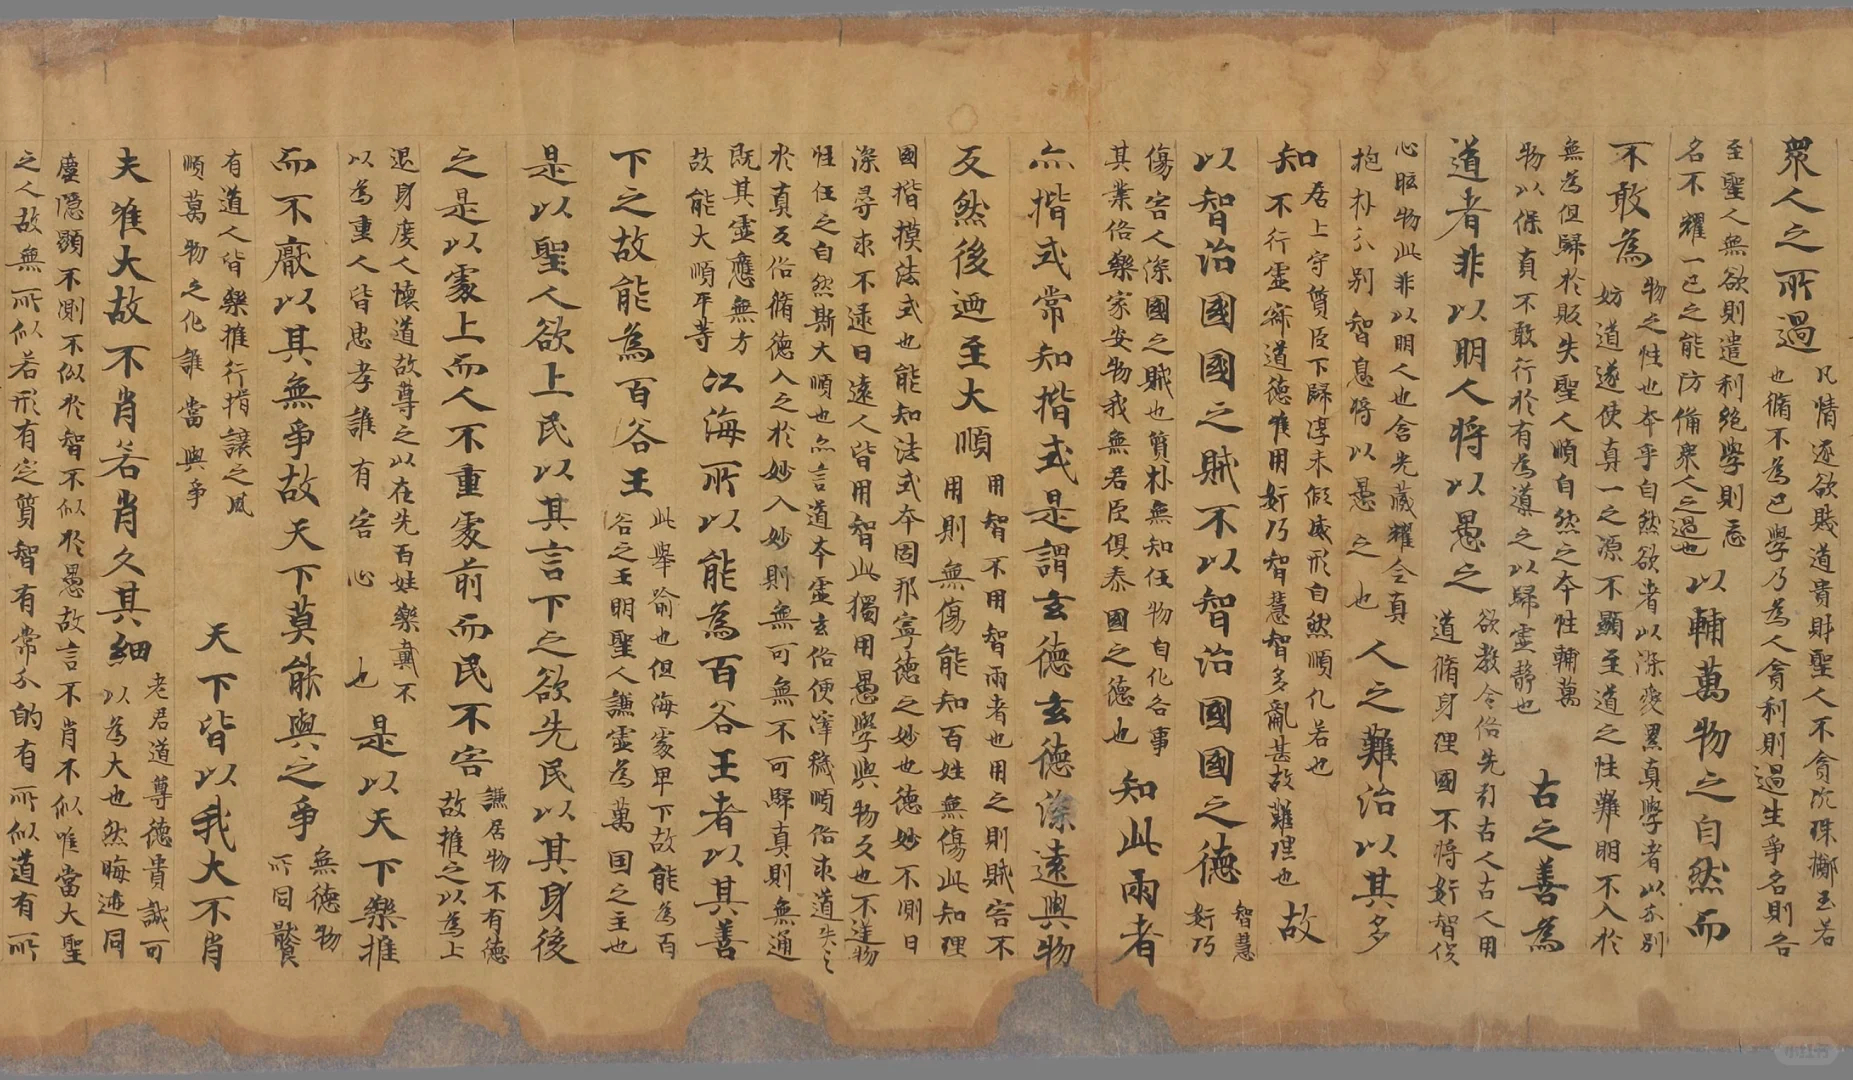 衆人之所過
凡情逐欲賤道貴財聖人不貪沉珠擲玉若
也脩不為已學乃為人貪利則過生爭名則咎
至聖人無欲則遣利絕學則忘
名不耀一已之能防脩衆人之過也
以輔萬物之自然而
不敢為
物之性也本乎自然欲者以染變黑真學者以分別
妨道遂使真一之源不顯至道之性難明不入於
無為但歸於敗失聖人順自然之本性輔萬
物以保真不敢行於有為導之以歸靈靜也
古之善為
道者非以明人將以愚之
欲教令俗先引古人古人用
道脩身理國不將奸智俀
心眩物此非以明人也含光藏耀全真
抱朴分別智息將以愚之也
人之難治以其多
知
居上守質臣下歸淳未假威形自然順化若也
不行靈寂道德唯用奸巧智慧智多亂甚故難理也
故
以智治國國之賊不以智治國國之德
智慧
奸巧
傷害人深國之賊也質朴無知任物自化各事
其業俗樂家安物我無君臣俱泰國之德也
知此兩者
亦揩式常知揩式是謂玄德玄德深遠與物
反然後迺至大順
用智不用智兩者也用之則賊害不
用則無傷能知百姓無傷此知理
國揩摸法式也能知法式本固邦寧德之妙也德妙不測曰
深尋求不逮曰遠人皆用智此獨用愚學與物反也不逆物
性任之自然斯大順也亦言道本靈玄俗便滓穢順俗求道失之
於真反俗脩德入之於妙入妙則無可無不可歸真則無通
既其靈應無方
故能大順平等
江海所以能為百谷王者以其善
下之故能為百谷王
此舉喻也但海處卑下故能為百
谷之王明聖人謙靈為萬国之主也
是以聖人欲上民以其言下之欲先民以其身後
之是以處上而人不重處前而民不害
謙居物不有德
故推之以為上
退身度人懷道故尊之以在先百姓樂戴不
以為重人皆忠孝誰有害心也
是以天下樂推
而不厭以其無爭故天下莫能與之爭
無德物
所同
有道人皆樂推行揖讓之風
順萬物之化誰當與爭
天下皆以我大不肖
夫唯大故不肖若肖久其細
老君道尊德貴誠可
以為大也然晦迹同
塵隱顯不測不似於智不似於愚故言不肖不似唯當大聖
之人故無所似若形有定質智有常分的有所似道有所